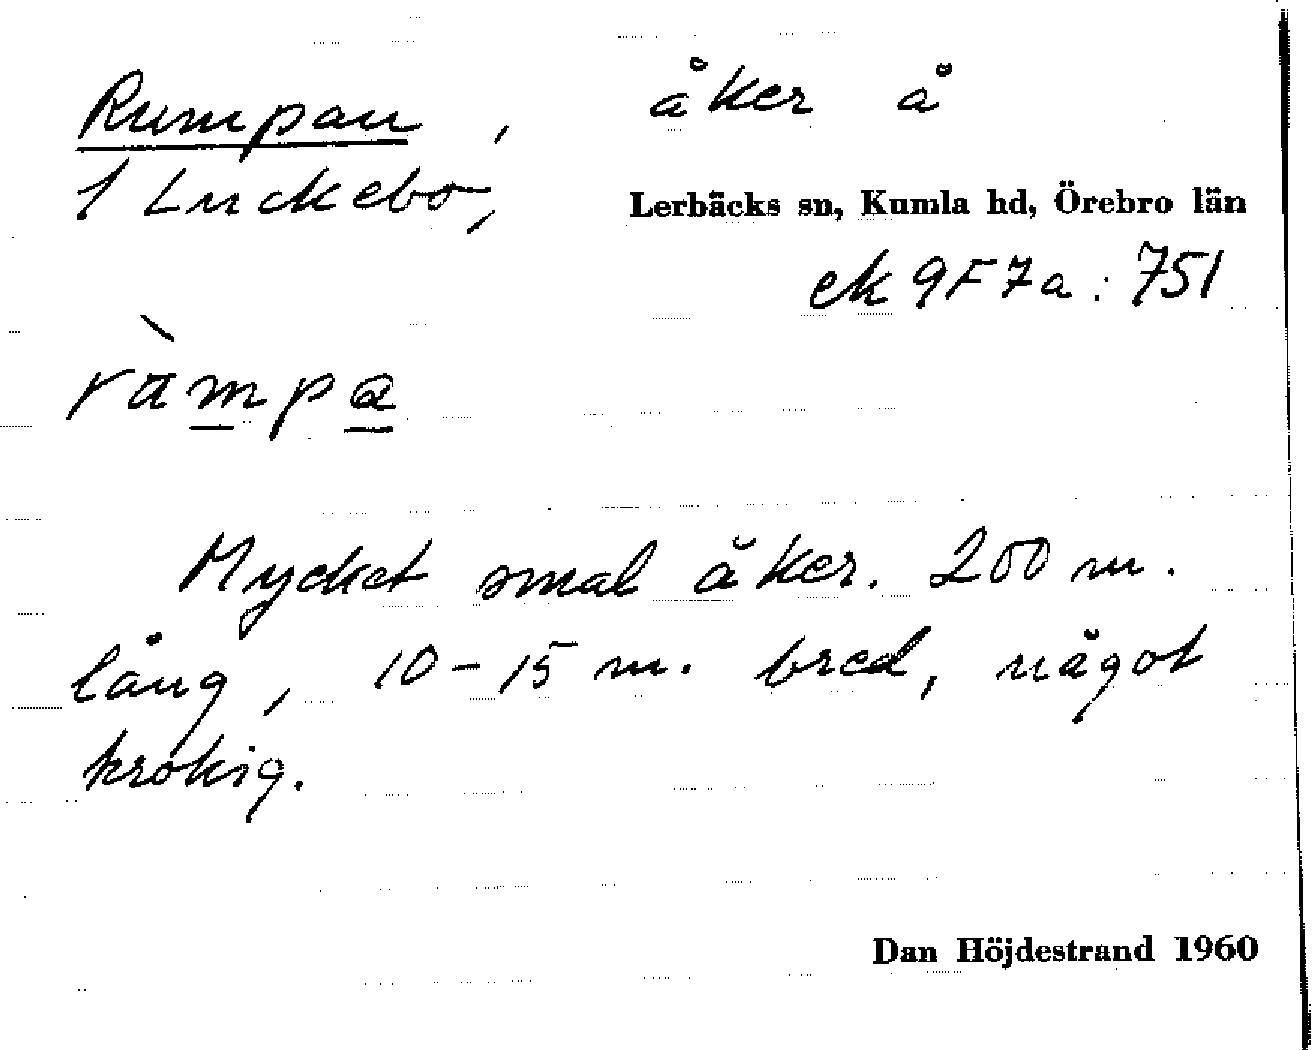 Rumpan, åker å
1 Luckebo, Lerbäcks sn, Kumla hd, Örebro län
ek 9F7a : 751
ràmpa
Mycket smal åker. 200 m.
lång, 10-15 m. bred, något
krokig.
Dan Höjdestrand 1960